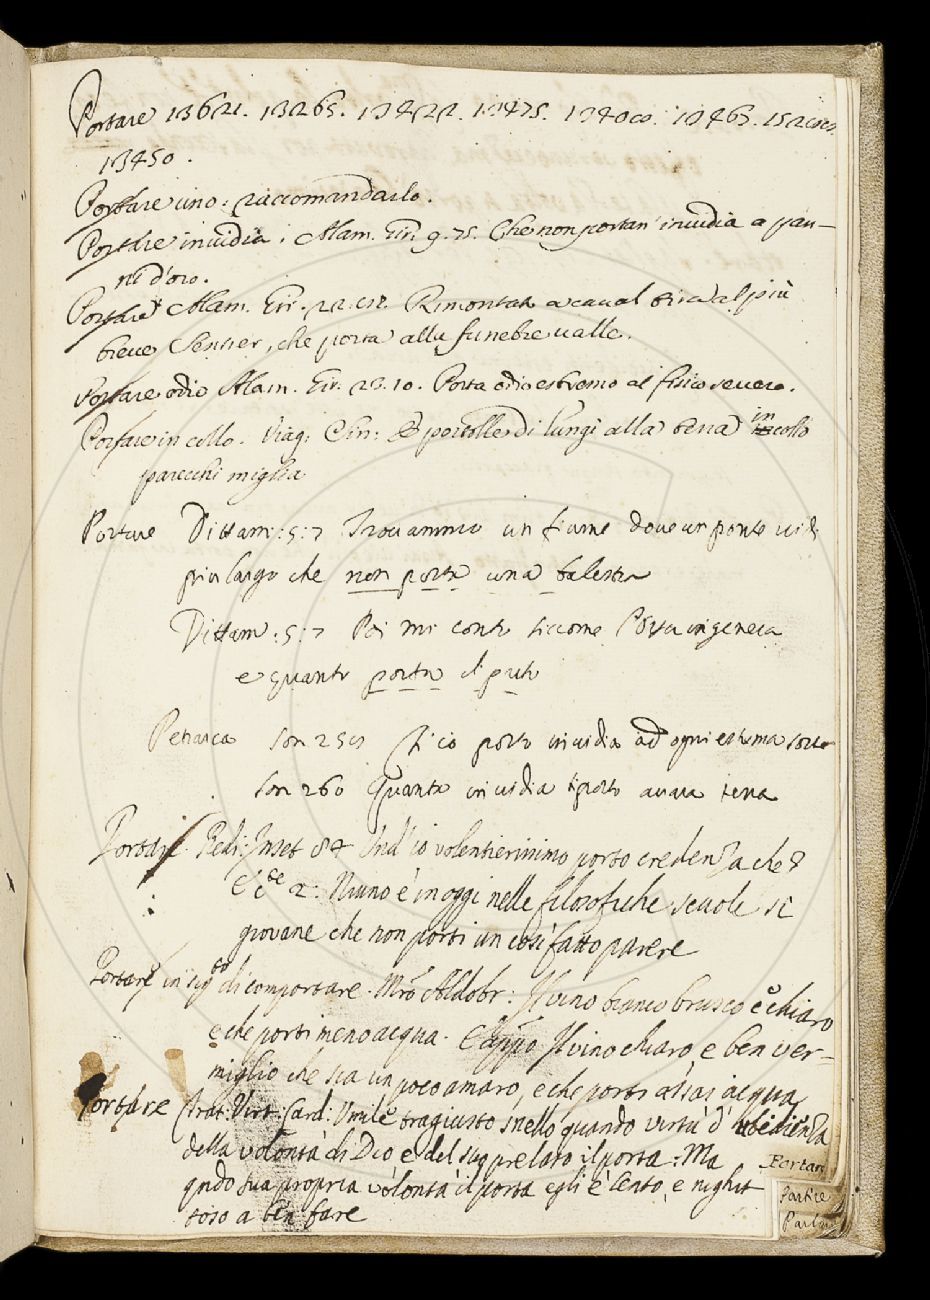 Portare 13621. 13265. 13475. 13465.
13450.
Portare uno: raccomandarlo.
Portare inuidia. Alam. Gir. 9. 75. Che non portan' inuidia a pan-
ni d'oro.
Portare Alam. Gir. Rimontati a caual al più
breue Sentier, che porta alla funebre ualle.
Portare odio Alam. Gir. 23. 10. Porta odio estremo al fisico seuero.
Portare in collo. Viag: Sin: E portolle di lungi alla terra in collo
parecchi miglia
Portare Dittam: 5: 7 Trouammo un fiume doue un ponte uidi
piu largo che non porta una balestra
Dittam: 5: 7 Poi mi conto siccome s'ingenera
e quanto porta il
Petrarca son 259 Ch'io porto inuidia ad ogni estrema sorte
son 260 Quanta inuidia ti porto auara terra
Portare. Redi: Inset 84 Ond'io volentierissimo porto credenza che &
E c 2: Niuno è in oggi nelle filosofiche scuole si
giovane che non porti un così fatto parere
Portare in sig di comportare. Mro Aldobr: Il vino bianco brusco e chiaro
e che porti meno acqua. E appo Il vino chiaro, e ben ver-
miglio che sia un poco amaro, e che porti assai acqua
Portare Trat: Virt: Card: Umile tragiusto snello quando virtù d'ubidienza
della volontà di Dio e del suo prelato il porta: Ma
qndo sua propria volontà il porta egli è lento, e nighit
toso a ben fare
Portare
Partire